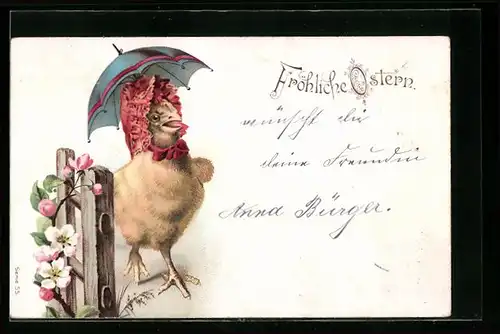 Fröhliche Ostern.
wünscht dir
deine Freundin
Anna Bürger.
Serie 55